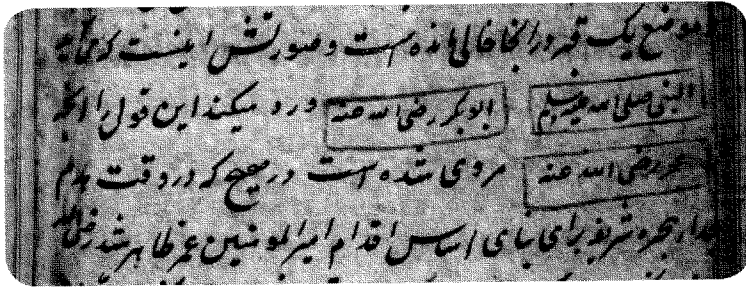 موضع یک قبر در آنجا خالی مانده است و صورتش اینست که می
النبی صلی الله علیه وسلم ابوبکر رضی الله عنه و رد میکند این قول را آنچه
عمر رضی الله عنه مروی شده است در صحیح که در وقت هدم
جدار حجره شریفه برای بنای اساس اقدام امیر المومنین عمر ظاهر شد رضی الله